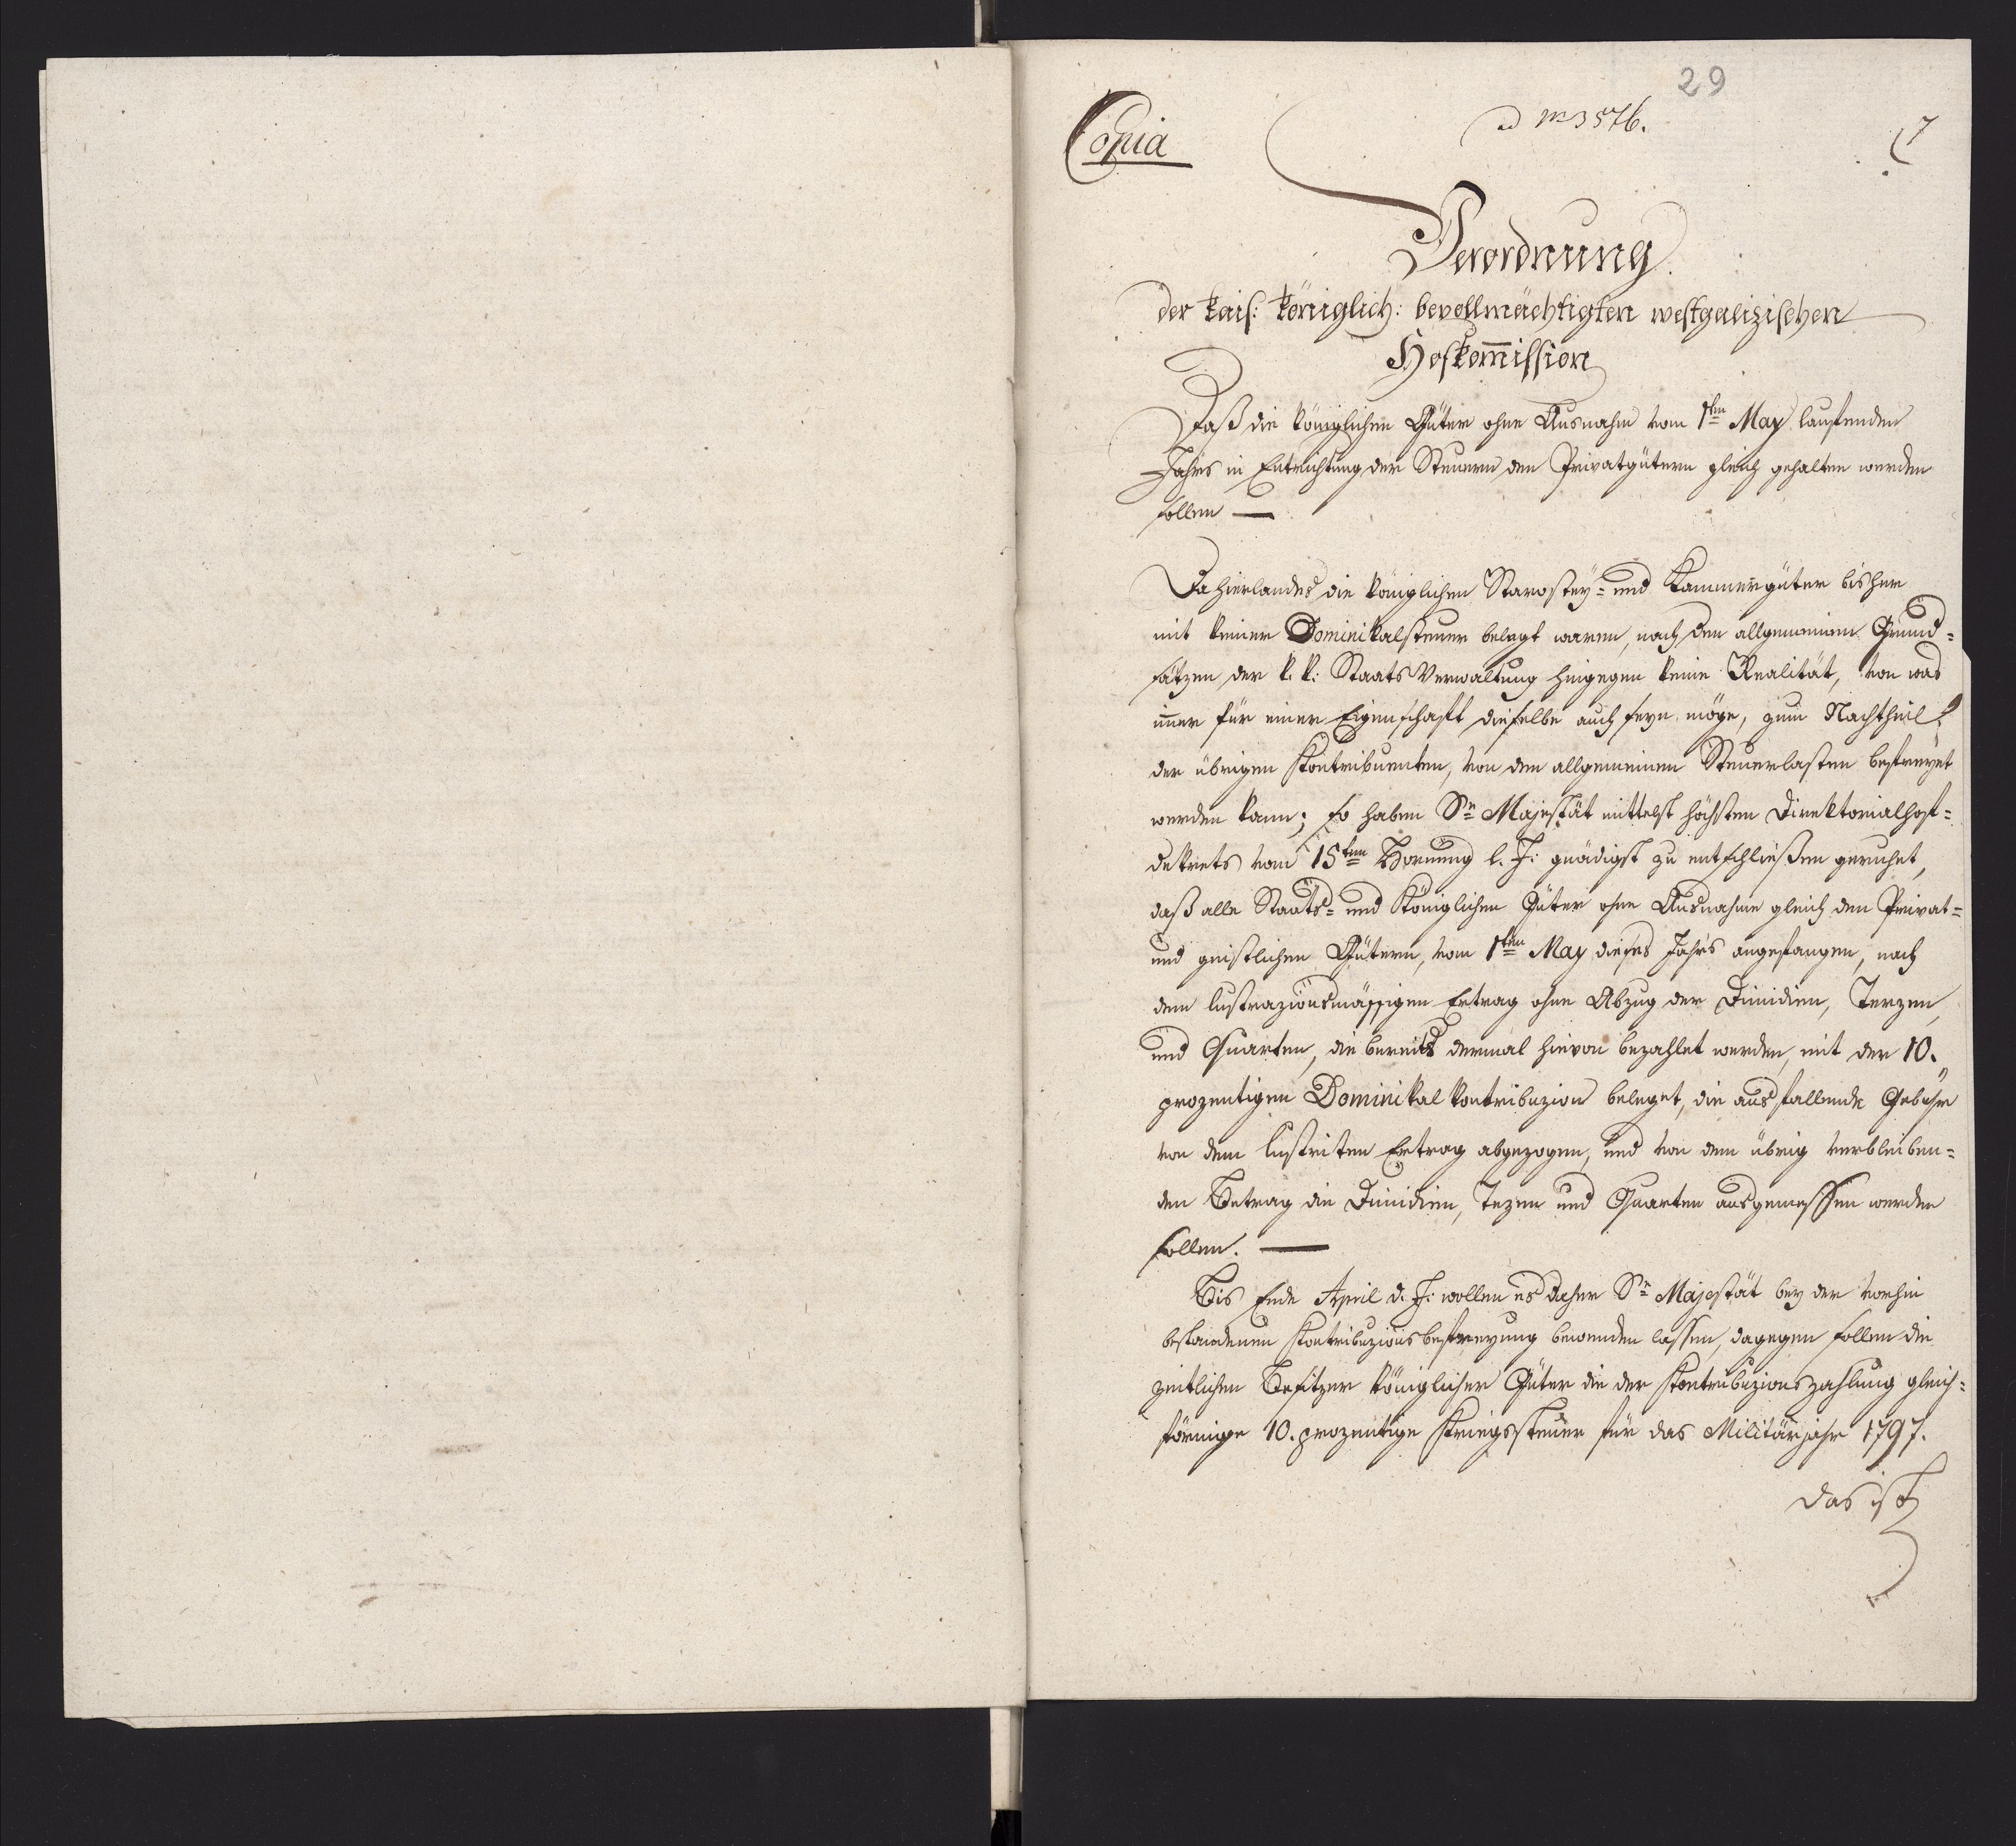 29
Copia
ad nr 3576.
7
Verordnung
der kais: königlich: bevollmächtigten westgalizischen
Hofkom̄ission
Daß die königlichen Güter ohne Ausnahm vom 1ten May laufenden
Jahrs in Entrichtung der Steuern den Privatgütern gleich gehalten werden
sollen —
Da hierlandes die königlichen Starostey- und Kammergüter bisher
mit keiner Dominikalsteuer belegt waren, nach den allgemeinen Grund-
sätzen der k. k: Staats Verwaltung hingegen keine Realität, von was
im̄er für einer Eigenschaft dieselbe auch seyn möge, zum Nachtheil
der übrigen Kontribuenten, von den allgemeinen Steuerlasten befreyet
werden kann; so haben Se Majestät mittelst höchsten Direktorialhof-
dekrets vom 15ten Hornung l. J: gnädigst zu entschließen geruhet,
daß alle Staats- und Königlichen Güter ohne Ausnahme gleich den Privat-
und geistlichen Gütern, vom 1ten May dieses Jahrs angefangen, nach
dem lustrazionsmässigen Ertrag ohne Abzug der Dimidien, Terzen,
und Quarten, die bereits dermal hievon bezahlet werden, mit der 10.
prozentigen Dominikal kontribuzion beleget, die ausfallende Gebühr
von dem lustriten Ertrag abgezogen, und von dem übrig verbleiben-
den Betrag die Dimidien, Tezen und Quarten ausgemessen werden
sollen. —
Bis Ende April d. J: wollen es daher Se Majestät bey der vorhin
bestandenen Kontribuzionsbefreyung bewenden lassen, dagegen sollen die
zeitlichen Besitzer königlicher Güter die der Kontribuzions zahlung gleich-
förmige 10. prozentige Kriegssteuer für das Militärjahr 1797.
das ist